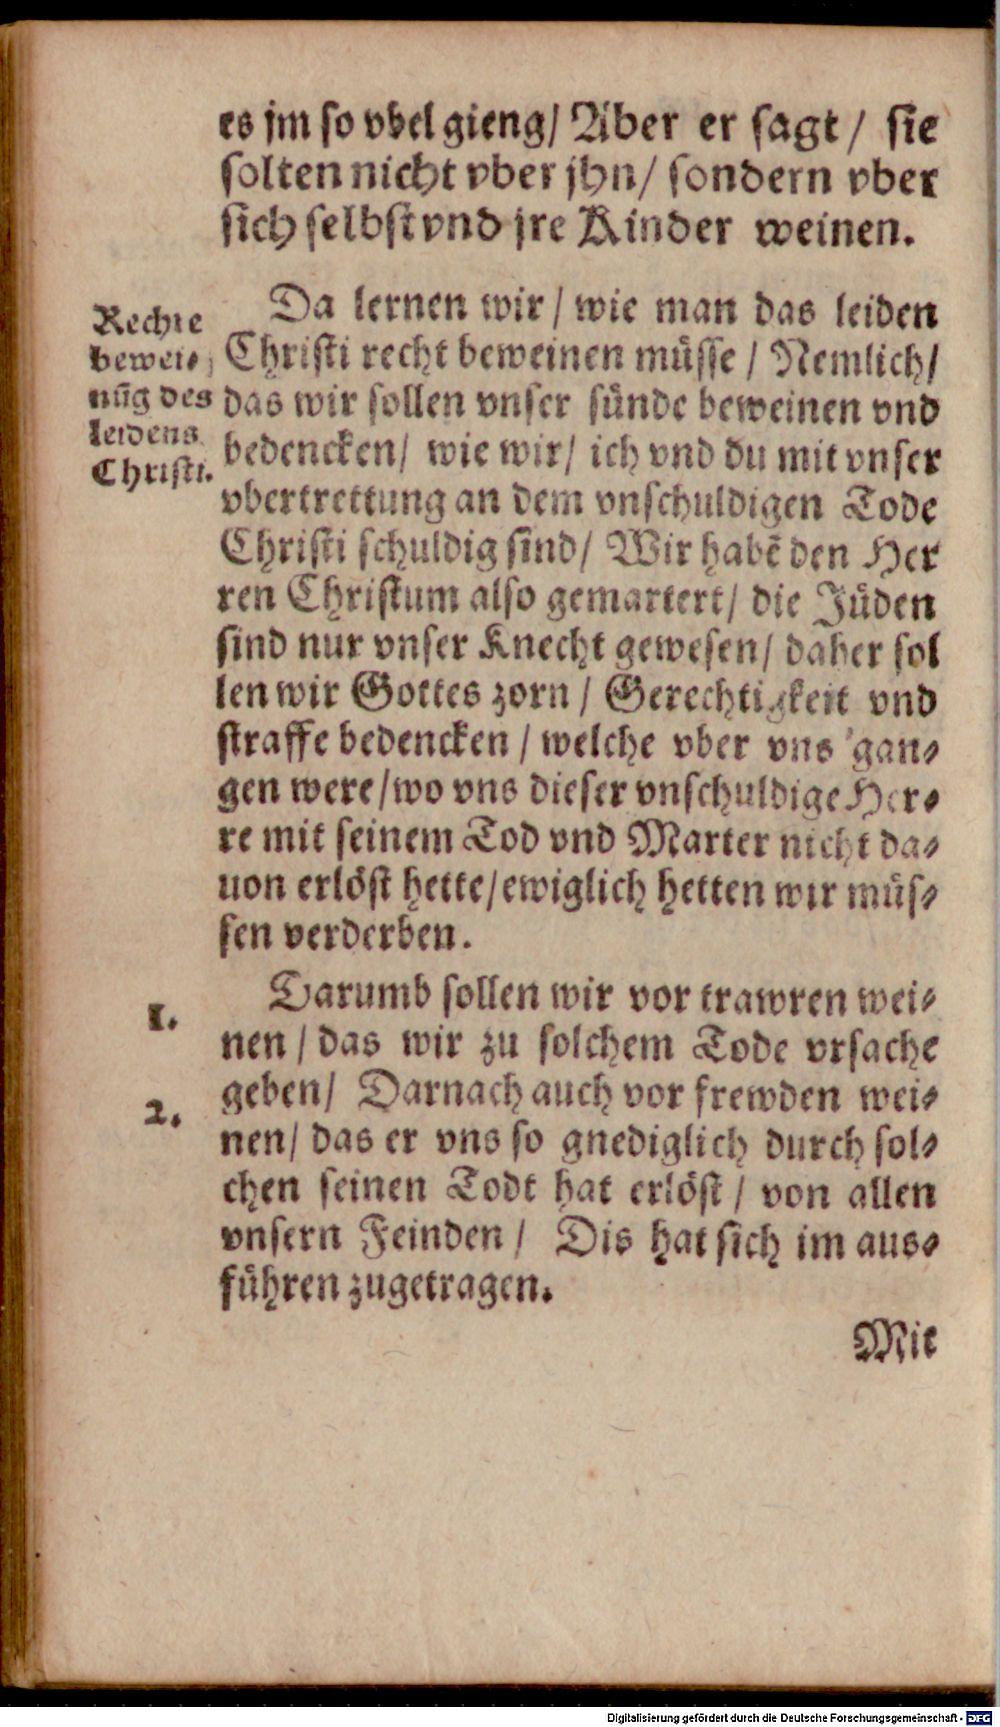 es jm so vbel gieng/ Aber er sagt / sie
solten nicht vber jhn/ sondern vber
sich selbst vnd jre Kinder weinen.
Rechte
bewei⸗
nūg des
leidens
Christi.
Da lernen wir / wie man das leiden
Christi recht beweinen müsse / Nemlich/
das wir sollen vnser sünde beweinen vnd
bedencken/ wie wir/ ich vnd du mit vnser
vbertrettung an dem vnschuldigen Tode
Christi schuldig sind/ Wir habē den Her
ren Christum also gemartert/ die Jüden
sind nur vnser Knecht gewesen/ daher sol
len wir Gottes zorn / Gerechtigkeit vnd
straffe bedencken / welche vber vns gan⸗
gen were/wo vns dieser vnschuldige Her⸗
re mit seinem Tod vnd Marter nicht da⸗
uon erlöst hette/ewiglich hetten wir müs⸗
sen verderben.
1.
Darumb sollen wir vor trawren wei⸗
nen / das wir zu solchem Tode vrsache
2.
geben/ Darnach auch vor frewden wei⸗
nen/ das er vns so gnediglich durch sol⸗
chen seinen Todt hat erlöst / von allen
vnsern Feinden / Dis hat sich im aus⸗
führen zugetragen.
Mit
Digitalisierung gefördert durch die Deutsche Forschungsgemeinschaft - DFG